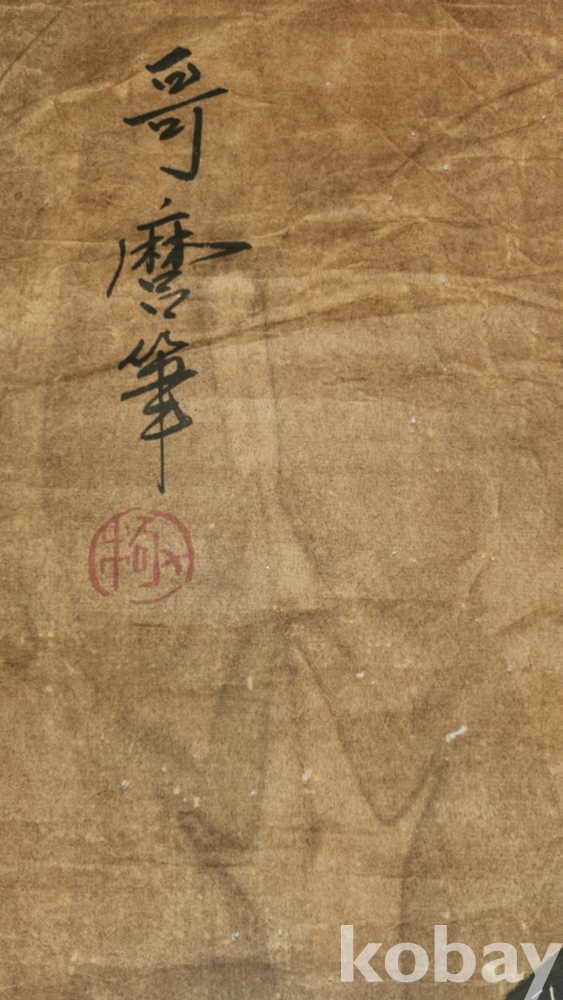 哥麿筆
極
kobay